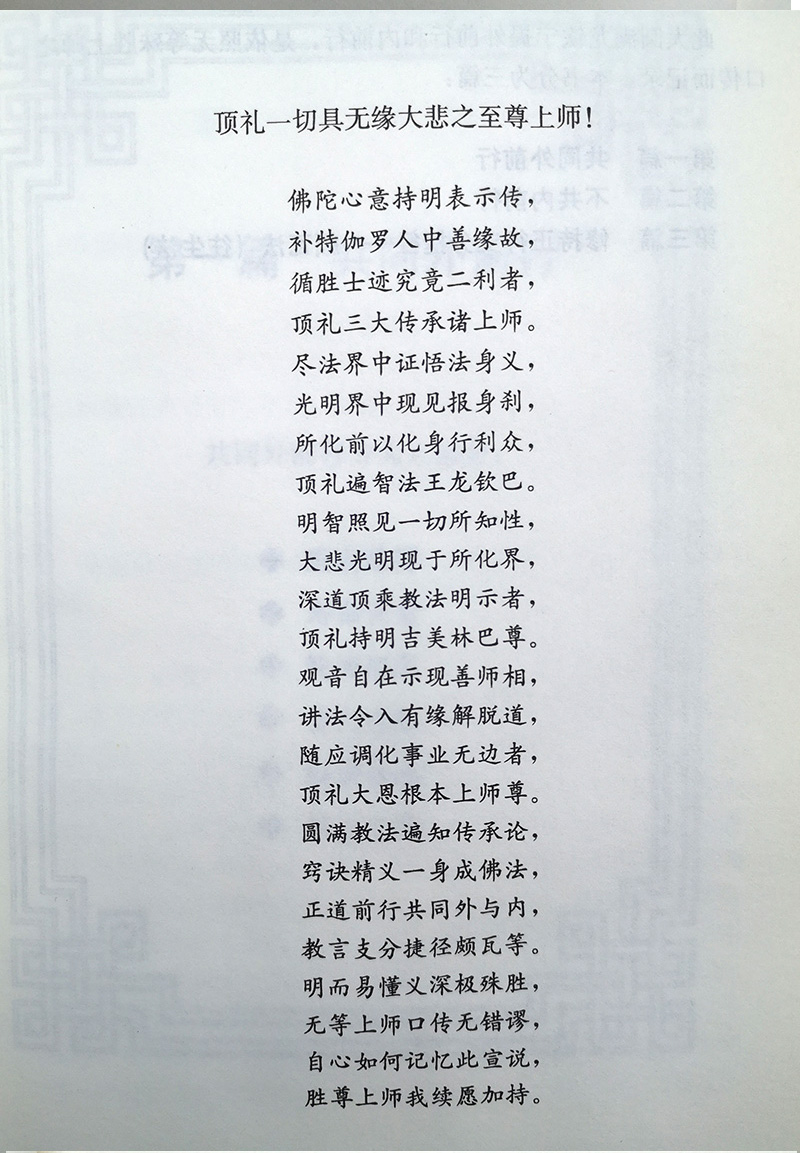 顶礼一切具无缘大悲之至尊上师！
佛陀心意持明表示传，
补特伽罗人中善缘故，
循胜士迹究竟二利者，
顶礼三大传承诸上师。
尽法界中证悟法身义，
光明界中现见报身刹，
所化前以化身行利众，
顶礼遍智法王龙钦巴。
明智照见一切所知性，
大悲光明现于所化界，
深道顶乘教法明示者，
顶礼持明吉美林巴尊。
观音自在示现善师相，
讲法令入有缘解脱道，
随应调化事业无边者，
顶礼大恩根本上师尊。
圆满教法遍知传承论，
窍诀精义一身成佛法，
正道前行共同外与内，
教言支分捷径颇瓦等。
明而易懂义深极殊胜，
无等上师口传无错谬，
自心如何记忆此宣说，
胜尊上师我续愿加持。